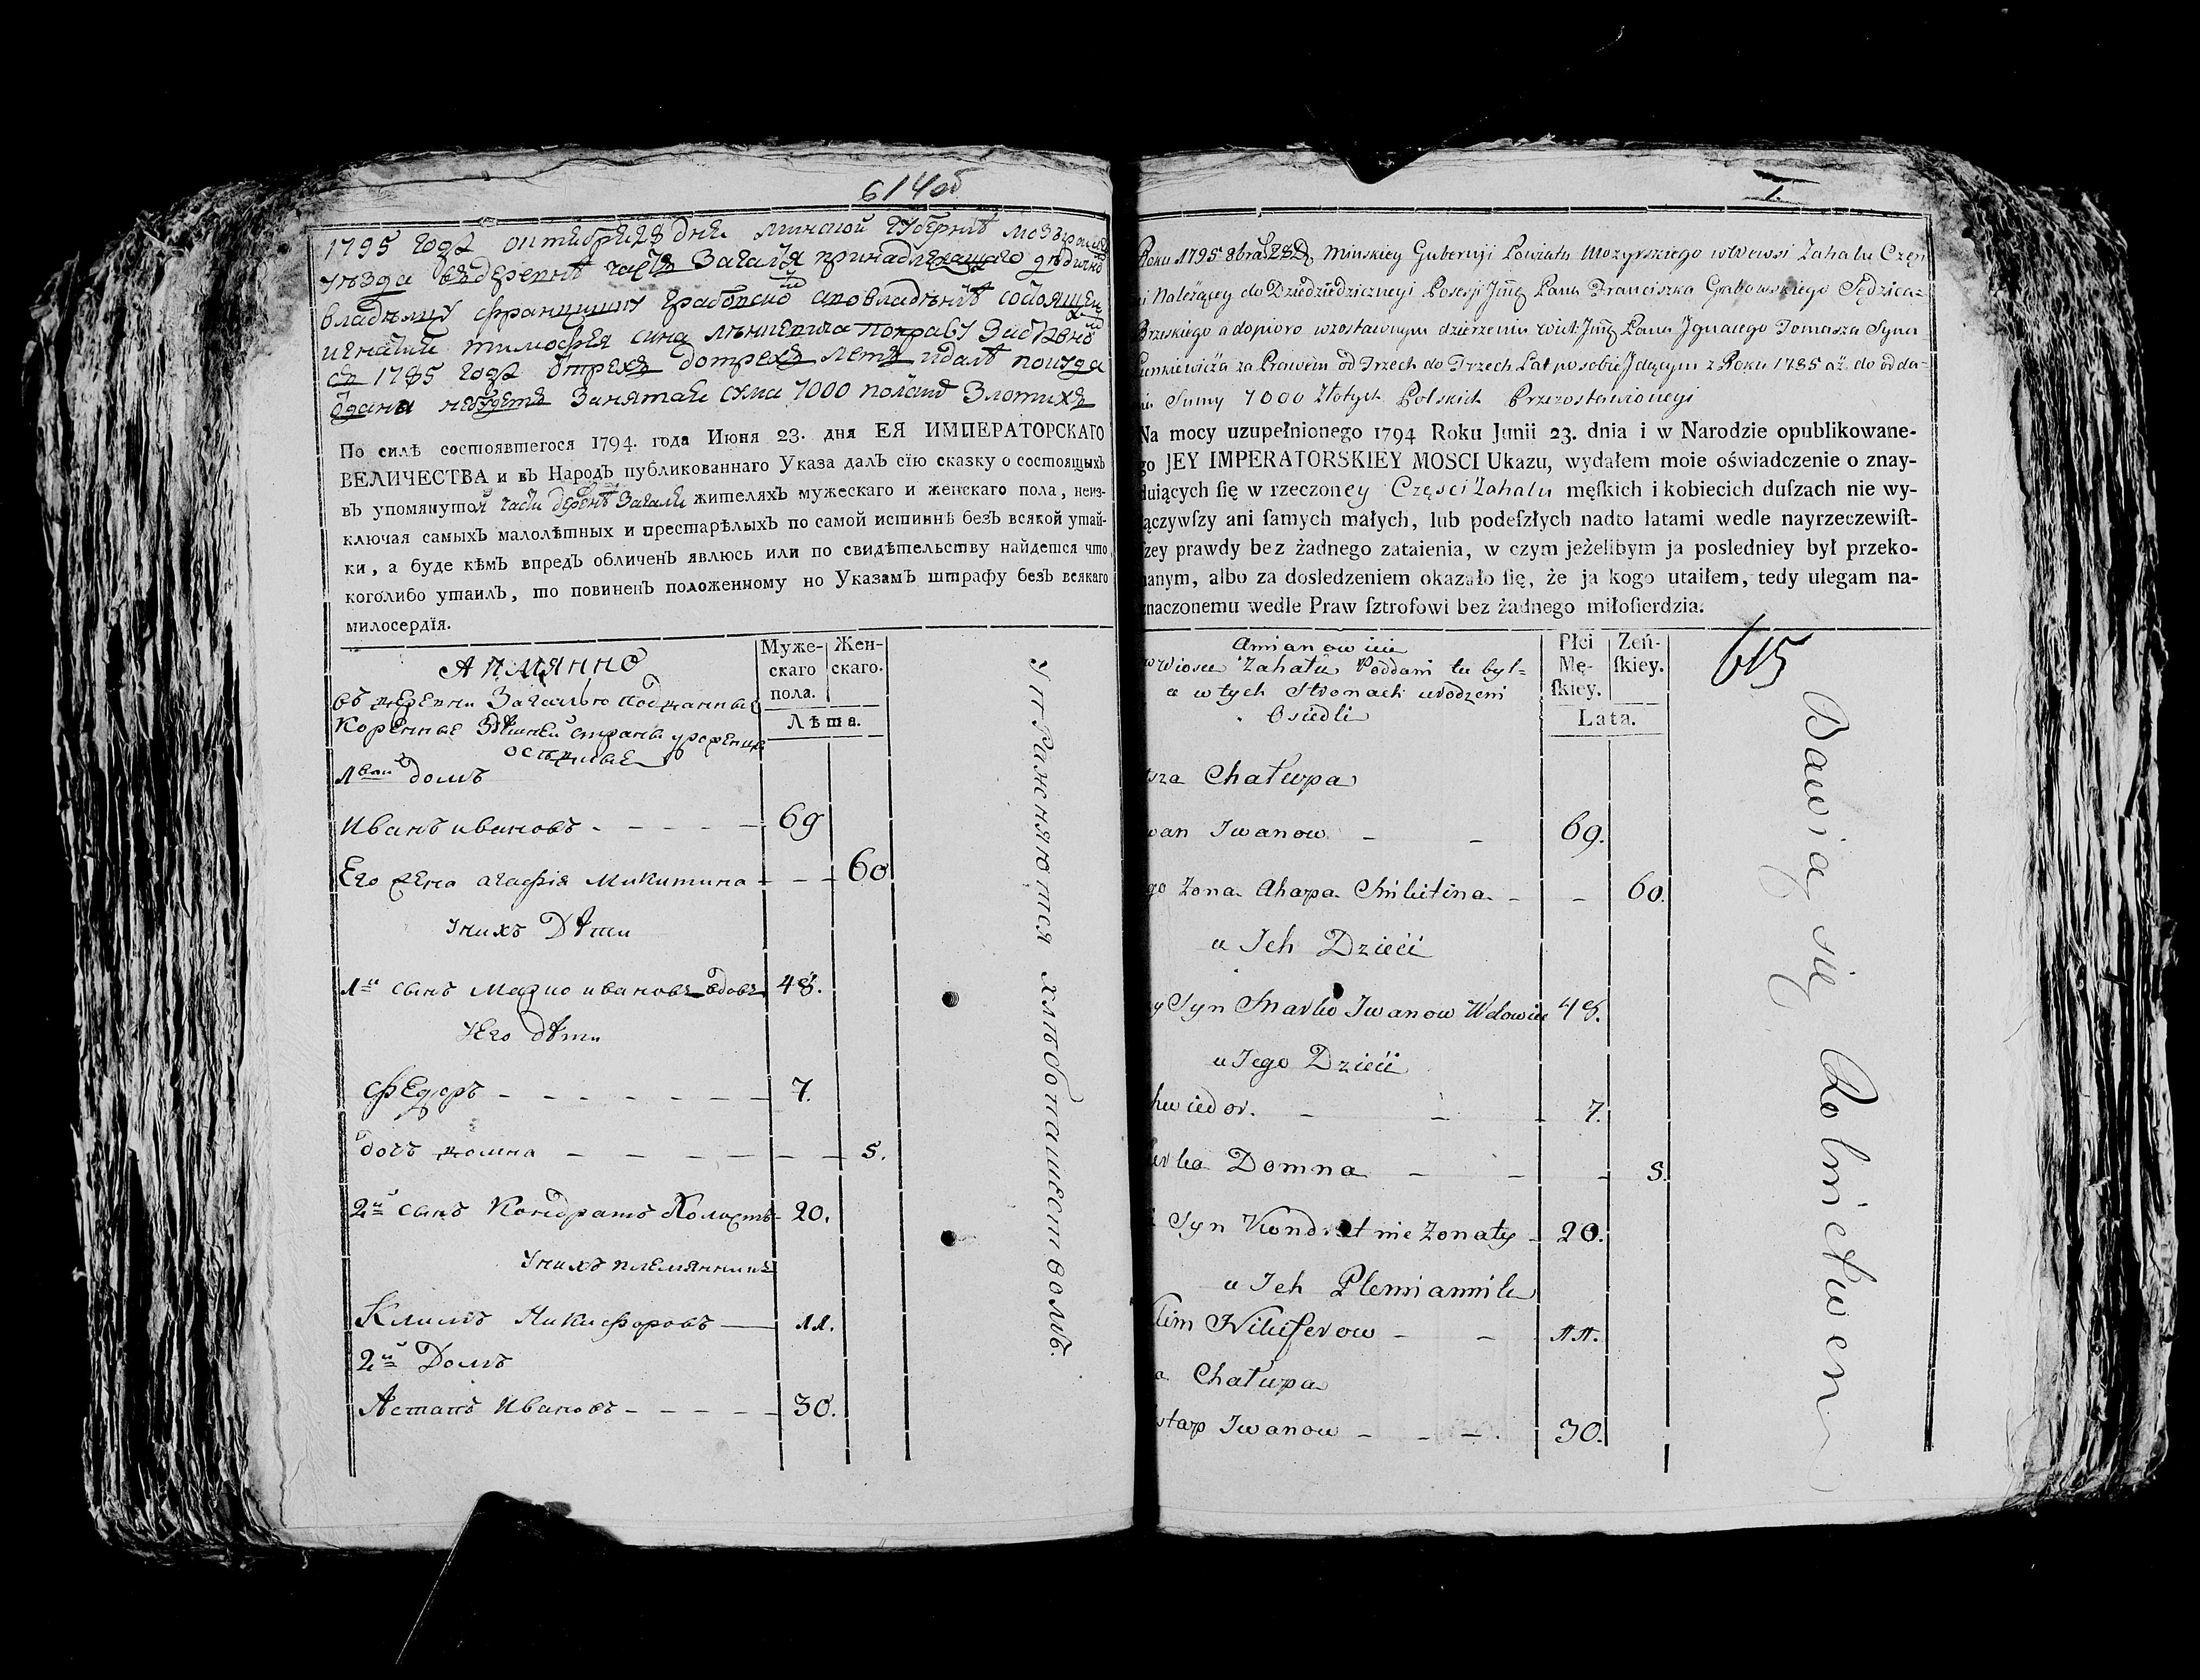 614об
1795 года октебря 28 дня минской губерниѣ мозырскаго
уѣзда въ деревнѣ часть Загалья принадлежащаго дѣдично
владѣлцу Францишку Грабовско
Игнатии Тимофея сина
съ 1785 года отрехъ дотрехъ летъ идалѣ
занятая сума 7000 полскихъ Злотихъ
По силѣ состоявшегося 1794. года Июня 23. дня ЕЯ ИМПЕРАТОРСКАГО
ВЕЛИЧЕСТВА и въ Народъ публикованнаго Указа далъ сїю сказку о состоящыхъ
въ упомянутой части деревнѣ Загалье жителяхъ мужескаго и женскаго пола, неиз-
ключая самыхъ малолѣтныхъ и престарѣлыхъ по самой истиннѣ безъ всякой утай-
ки, а буде кѣмъ впредъ обличенъ явлюсь или по свидѣтельству найдется что
коголибо утаилъ, то повиненъ положенному но Указамъ штрафу безъ всякаго
милосердїя.
Муже-
скаго
пола.
Жен-
скаго.
Лѣта.
А имянно
въ деревни Загалью подданныя
Коренные здѣшней страны уроженцы
оседлые
1вой домъ
Иванъ ивановъ - 69
Его жена агафія Микитина - 60
Унихъ Дѣти
1й сынъ Марко ивановъ вдовъ 48.
Уего дѣти
Федоръ - 7.
дочъ домна - 5.
2й сынъ Кондратъ Холостъ - 20.
Унихъ племянникъ
Климъ Никифоровъ - 11.
2й Домъ
Астапъ Ивановъ - 30.
Упражняются хлѣбопашествомъ.
I
Roku 1795 8bra 28 D. Minskiey Gubernji Powiatu Mozyrskiego w Wewsi Zahalu Częs
ci Należącey do Dziedzicznej Posesji Jmć Pana Franciszka Grabowskiego Sędzica
Brzeskiego a dopioro wzostawnym dzierzeniu Jmć Pana Jgnacego Tomasza Syna
za Prawem od Trzech do Trzech Lat po sobie Jdącym z Roku 1785 aż do odda-
nia Sumy 7000 Złotych Polskich Przezostawioney
Na mocy uzupełnionego 1794 Roku Junii 23. dnia i w Narodzie opublikowane-
go JEY IMPERATORSKIEY MOSCI Ukazu, wydałem moie oświadczenie o znay-
duiących ſię w rzeczoney Częsci Zahalu męſkich i kobiecich duſzach nie wy-
łączywſzy ani ſamych małych, lub podeſzłych nadto latami wedle nayrzeczewiſt-
ſzey prawdy bez żadnego zataienia, w czym jeżelibym ja posledniey był przeko-
nanym, albo za dosledzeniem okazało ſię, że ja kogo utaiłem, tedy ulegam na-
znaczonemu wedle Praw ſztrofowi bez żadnego miłoſierdzia.
Płci
Mę-
ſkiey.
Zeń-
ſkiey.
Lata.
615
Amianowicie
w Wiosce Zahalu Poddani tu byl-
a w tych Stronach urodzeni
Osiedli
sza Chałupa
wan Iwanow - 69.
go Zona Ahapa Mikitina - 60.
u Ich Dzieci
y Syn Marko Iwanow Wdowiec 48.
u Jego Dzieci
hwiedor. - 7.
urka Domna - 5.
Syn Kondrat nie Zonaty - 20.
u Ich Plemiannik
lim Nikiferow - 11.
a Chałupa
stap Iwanow - 30.
Bawią się Rolnictwem